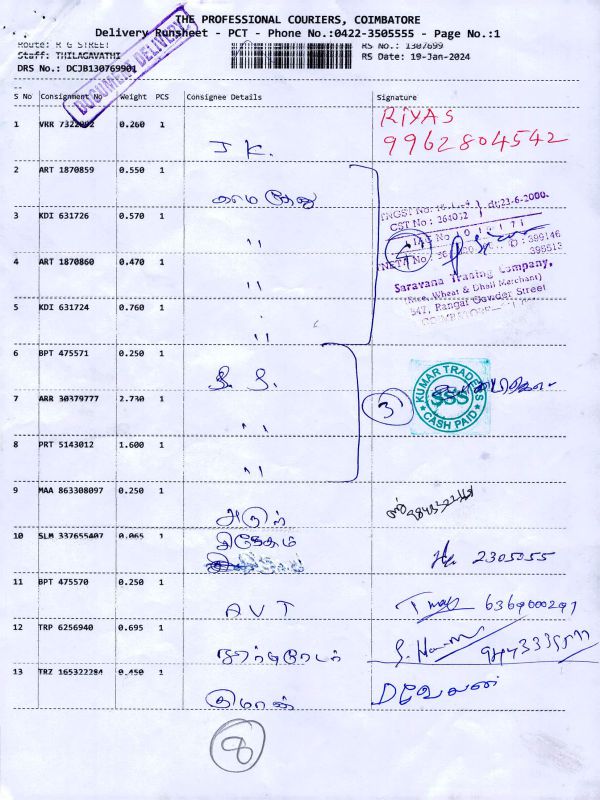 THE PROFESSIONAL COURIERS, COIMBATORE
Delivery Runsheet - PCT - Phone No.:0422-3505555 - Page No.:1
Route: R G STREET
RS No.: 1307699
Staff: THILAGAVATHI
RS Date: 19-Jan-2024
DRS No.: DCJB130769901
DOCUMENT DELIVERY
S No Consignment No Weight PCS Consignee Details Signature
1 VRR 7322092 0.260 1 J K. RiYAS
9962804542
2 ART 1870859 0.550 1 காமதேனு
3 KDI 631726 0.570 1 "
4 ART 1870860 0.470 1 "
5 KDI 631724 0.760 1 "
CST No: 264032
Saravana Trading Company,
(Rice, Wheat & Dhall Merchant)
547, Rangai Gowder Street
4
6 BPT 475571 0.250 1
7 ARR 30379777 2.730 1 "
8 PRT 5143012 1.600 1 "
3
KUMAR TRADERS
SSS
CASH PAID
9 MAA 863308097 0.250 1 அருள்
10 SLM 337655407 0.065 1 2305055
11 BPT 475570 0.250 1 AVT 6369000297
12 TRP 6256940 0.695 1
13 TRZ 165322284 0.450 1
8